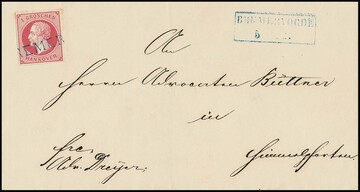 1 GROSCHEN
HANNOVER
BREMERVÖRDE
5
An
Herrn Advocaten Büttner
in
Himmelpforten
frc.
Adv. Dreyer.